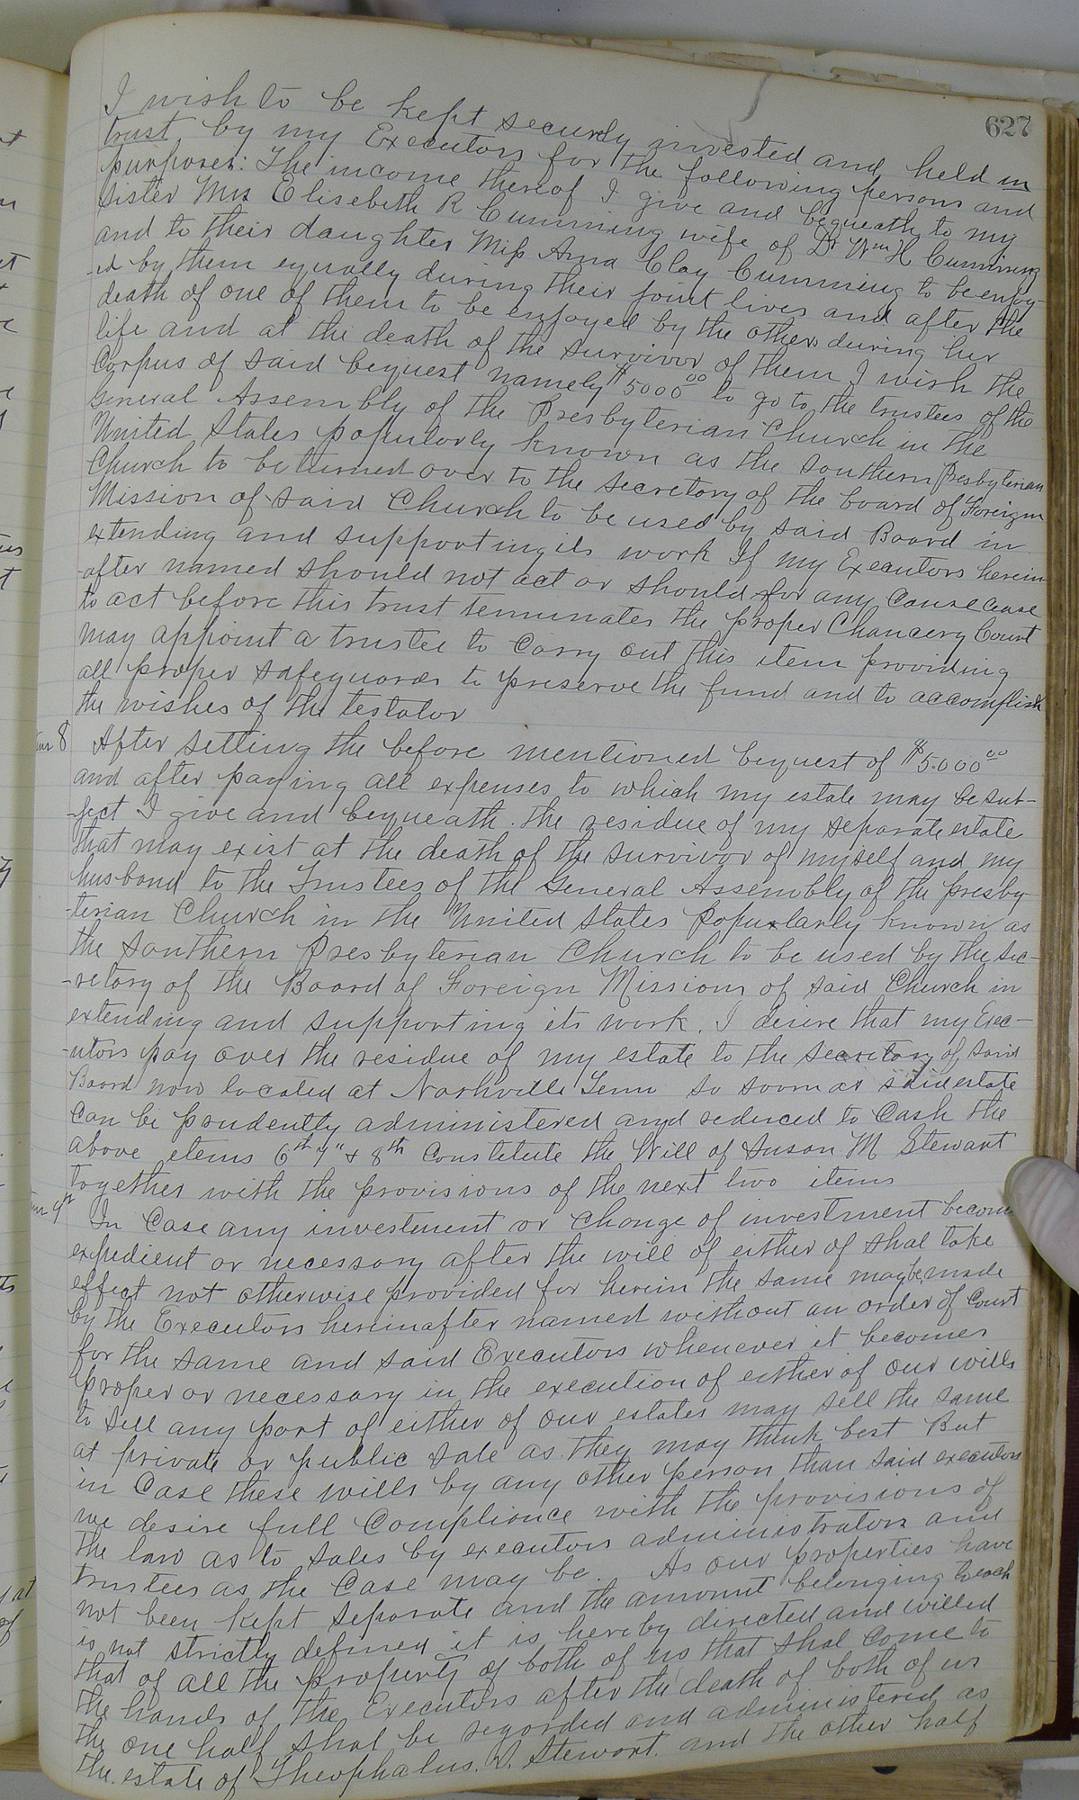 627
I wish to be kept securely invested and held in
trust by my Executors for the following persons and
purposes: The income thereof I give and bequeath to my
sister Mrs Elisebeth R Cumming wife of Dr Wm H Cumming
and to their daughter Miss Anna Clay Cumming to be enjoy-
-ed by them equally during their joint lives and after the
death of one of them to be enjoyed by the other during her
life and at the death of the survivor of them I wish the
Corpus of said bequest namely $5000 00 to go to the trustees of the
General Assembly of the Presbyterian Church in the
United States popularly known as the Southern Presbyterian
Church to be turned over to the secretary of the board of Foreign
Mission of said Church to be used by said Board in
extending and supporting its work If my Executors herein
after named should not act or should for any cause cease
to act before this trust terminates the proper Chancery Court
may appoint a trustee to carry out this item providing
all proper safeguards to preserve the fund and to accomplish
the wishes of the testator
8 After setting the before mentioned bequest of $5.000 00
and after paying all expenses to which my estate may be sub-
-ject I give and bequeath the residue of my separate estate
that may exist at the death of the survivor of myself and my
husband to the Trustees of the General Assembly of the presby
-terian Church in the United States popularly known as
the Southern Presbyterian Church to be used by the Sec-
-retary of the Board of Foreign Missions of said Church in
extending and supporting its work. I desire that my Exec-
-utors pay over the residue of my estate to the secretary of said
Board now located at Nashville Tenn so soon as said estate
can be prudently administered and reduced to Cash the
above items 6th 7" & 8th Constitute the Will of Susan M Stewart
together with the provisions of the next two items
9th In Case any investment or change of investment become
expedient or necessary after the will of either of shal take
effect not otherwise provided for herein the same may be made
by the Executors hereinafter named without an order of Court
for the same and said Executors whenever it becomes
proper or necessary in the execution of either of our wills
to sell any part of either of our estates may sell the same
at private or public sale as they may think best But
in Case these wills by any other person than said executors
we desire full Compliance with the provisions of
the law as to sales by executors administrators and
trustees as the Case may be. As our properties have
not been kept separate and the amount belonging to each
is not strictly defined it is hereby directed and willed
that of all the property of both of us that shal come to
the hands of the Executors after the death of both of us
the one half shal be regarded and administered as
the estate of Theophalus. Stewart. and the other half